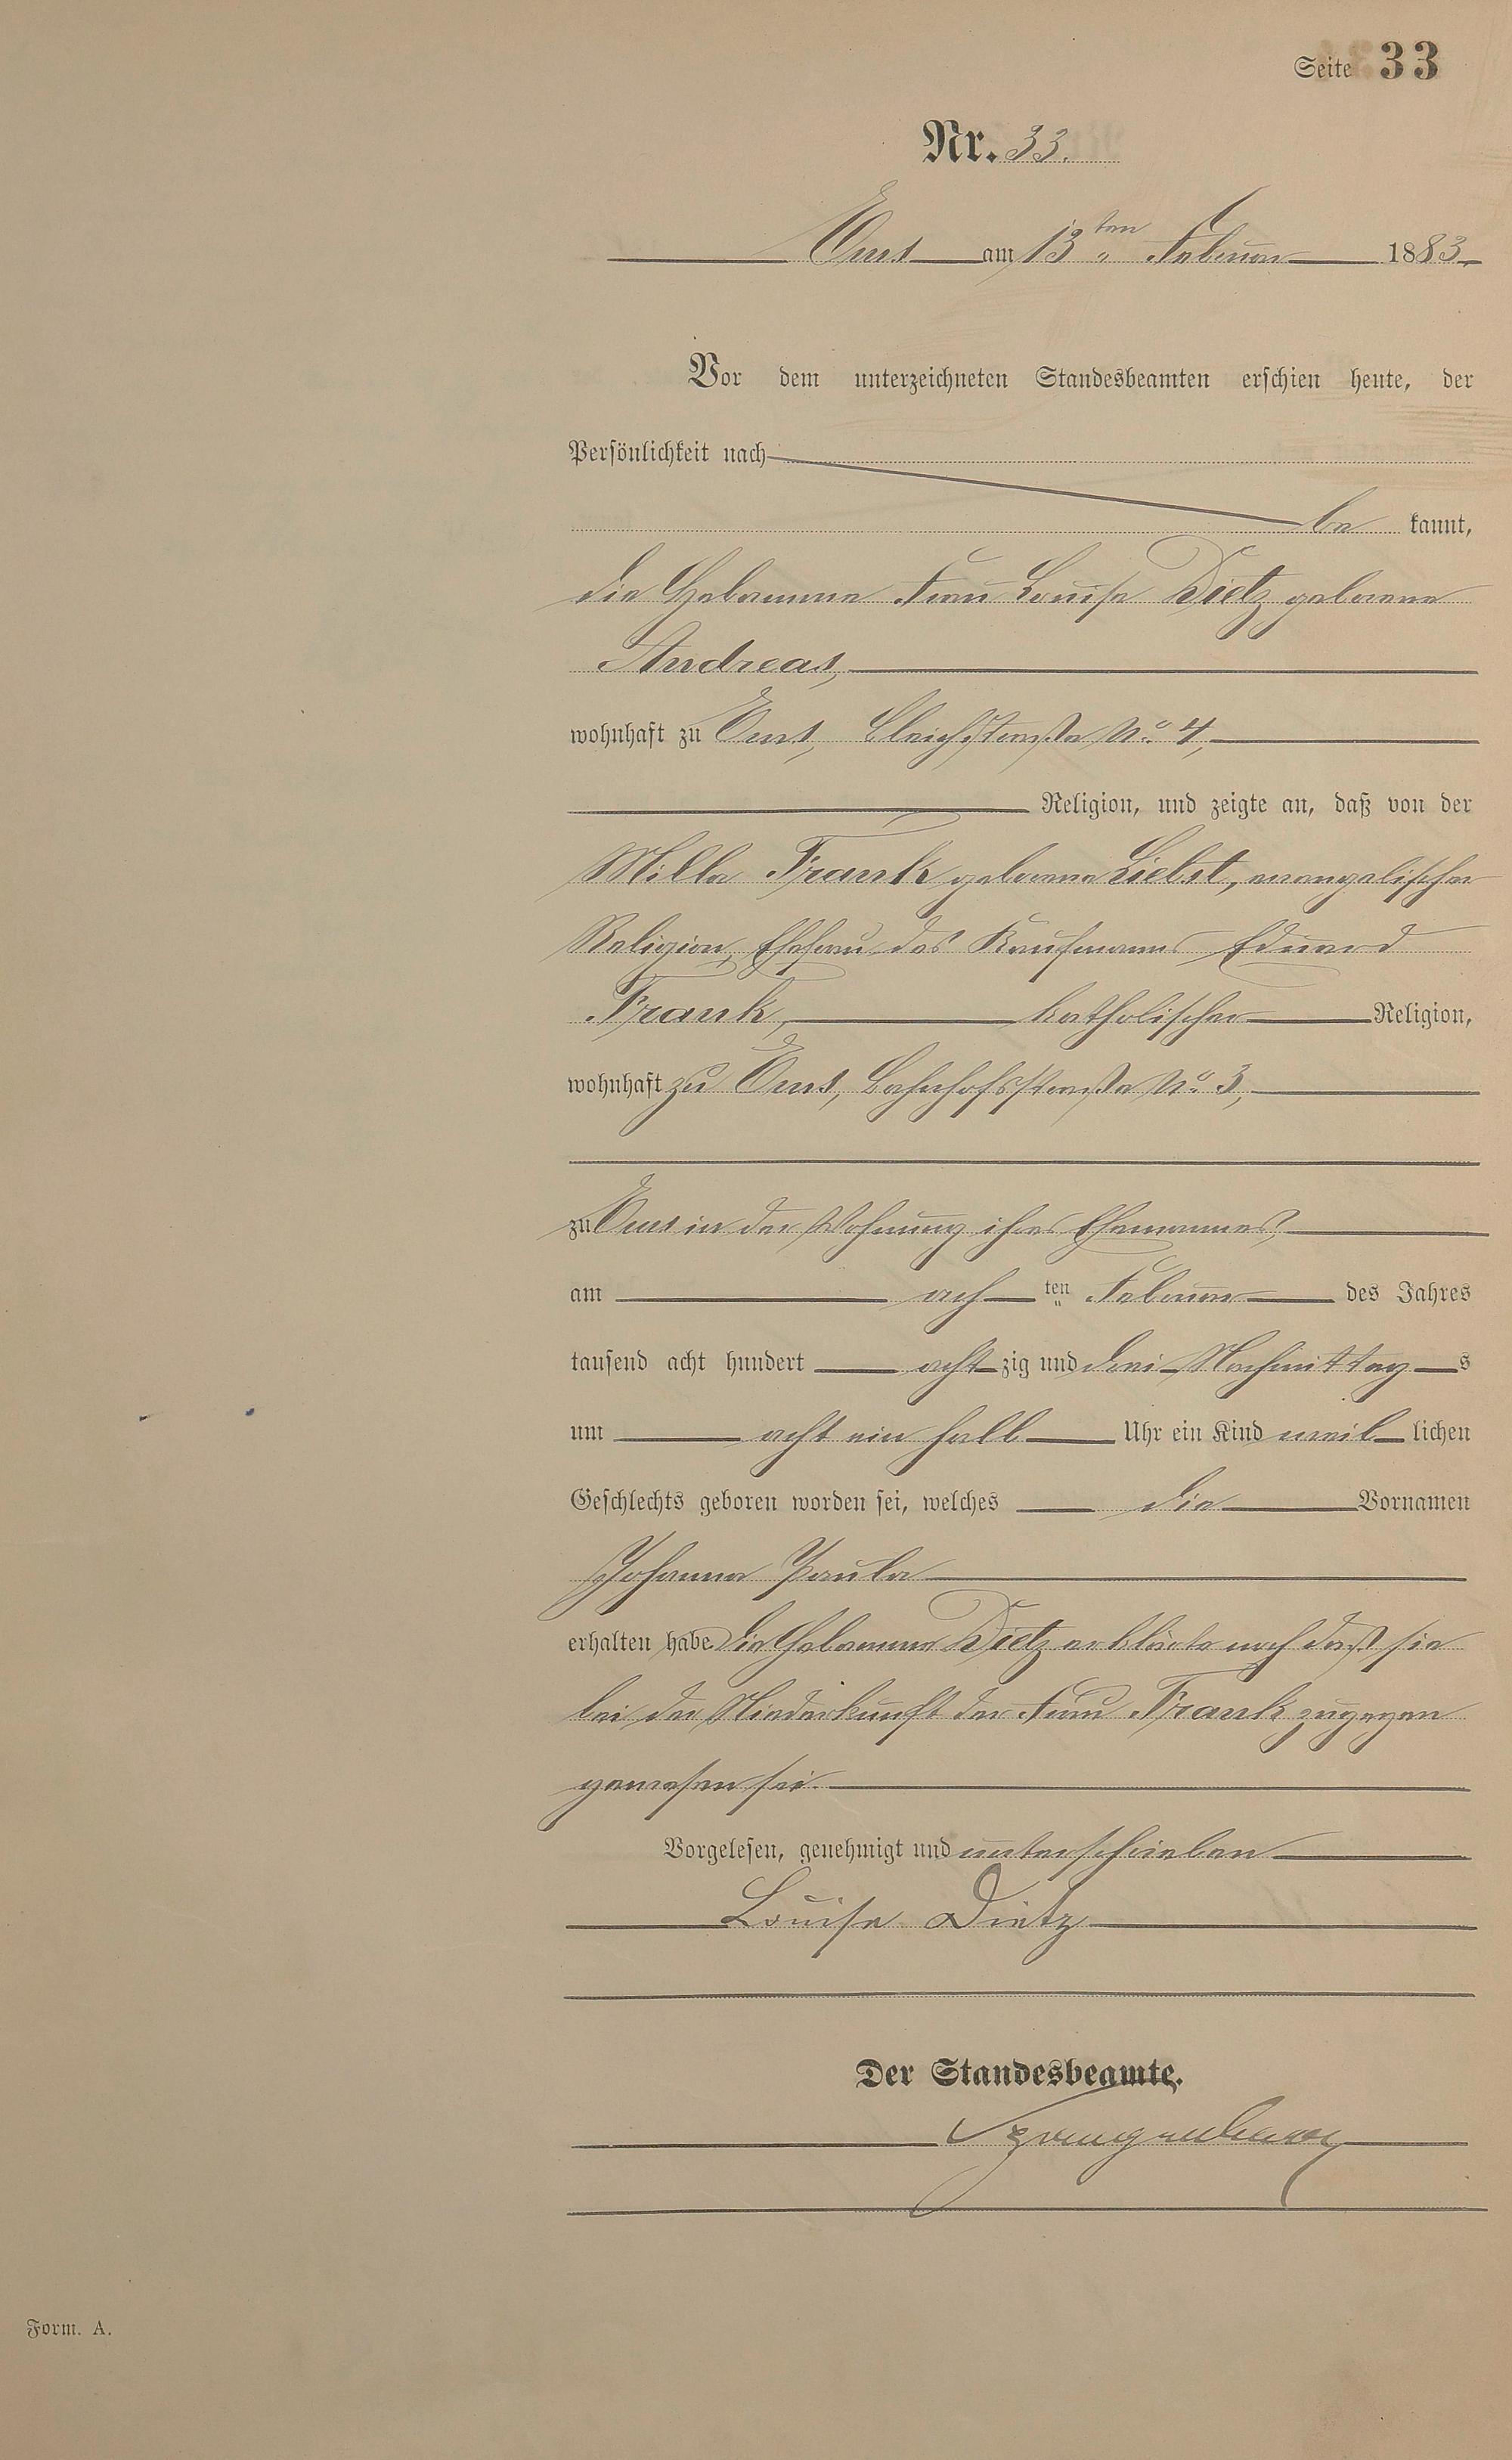 Seite 33
Nr. 33.
Ems am 13ten Februar 1883.
Vor dem unterzeichneten Standesbeamten erschien heute, der
Persönlichkeit nach
be kannt,
die Hebamme Frau Louise Dietz geborene
Andreas,
wohnhaft zu Ems, Bleichstraße No. 4,
Religion, und zeigte an, daß von der
Milla Frank geborene Liebst, evangelischer
Religion, Ehefrau des Kaufmanns Eduard
Frank, katholischer Religion,
wohnhaft zu Ems, Bahnhofsstraße No. 3,
zu Ems in der Wohnung ihres Ehemannes,
am ach ten Februar des Jahres
tausend acht hundert acht zig und drei Nachmittag s
um acht ein halb Uhr ein Kind weib lichen
Geschlechts geboren worden sei, welches die Vornamen
Johanna Paula
erhalten habe. Die Hebamme Dietz erklärte noch daß sie
bei der Niederkunft der Frau Frank zugegen
gewesen sei.
Vorgelesen, genehmigt und unterschrieben
Louise Dietz
Der Standesbeamte.
Form. A.